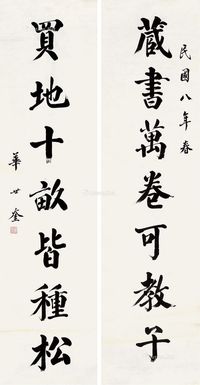 民國八年春
藏書萬卷可教子
買地十畝皆種松
華世奎